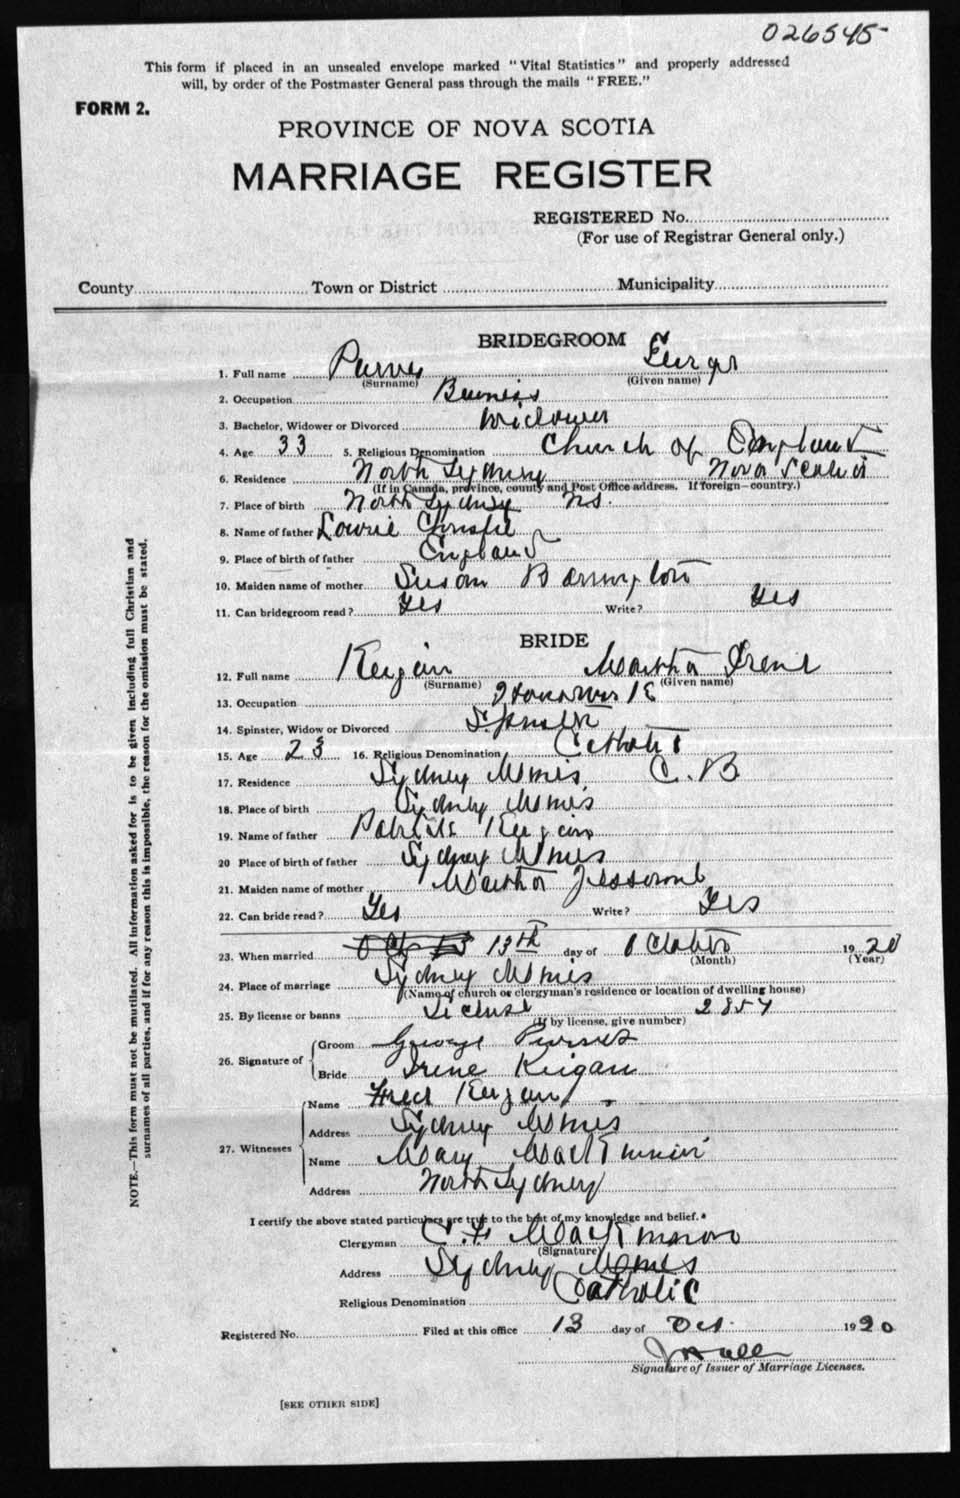 026545
This form if placed in an unsealed envelope marked "Vital Statistics" and properly addressed
will, by order of the Postmaster General pass through the mails "FREE."
FORM 2.
PROVINCE OF NOVA SCOTIA
MARRIAGE REGISTER
REGISTERED No.
(For use of Registrar General only.)
County Town or District Municipality
BRIDEGROOM
1. Full name Purves George
(Surname) (Given name)
2. Occupation Business
3. Bachelor, Widower or Divorced Widower
4. Age 33 5. Religious Denomination Church of England
6. Residence North Sydney Nova Scotia
(If in Canada, province, county and Post Office address. If foreign—country.)
7. Place of birth North Sydney N.S.
8. Name of father Lowrie Christie
9. Place of birth of father England
10. Maiden name of mother Susan Barrington
11. Can bridegroom read? Yes Write? Yes
BRIDE
12. Full name Keigan Martha Irene
(Surname) (Given name)
13. Occupation
14. Spinster, Widow or Divorced Spinster
15. Age 23 16. Religious Denomination Catholic
17. Residence Sydney Mines C.B
18. Place of birth Sydney Mines
19. Name of father Patrick Keigan
20 Place of birth of father Sydney Mines
21. Maiden name of mother Martha Jessome
22. Can bride read? Yes Write? Yes
23. When married 13th day of October 1920
(Month) (Year)
24. Place of marriage Sydney Mines
(Name of church or clergyman's residence or location of dwelling house)
25. By license or banns License 2857
(If by license, give number)
26. Signature of Groom George Purves
Bride Irene Keigan
27. Witnesses Name Fred Keigan
Address Sydney Mines
Name Mary MacKinnon
Address North Sydney
I certify the above stated particulars are true to the best of my knowledge and belief.
Clergyman MacKinnon
(Signature)
Address Sydney Mines
Religious Denomination Catholic
Registered No. Filed at this office 13 day of Oct. 1920
Signature of Issuer of Marriage Licenses.
[SEE OTHER SIDE]
NOTE.—This form must not be mutilated. All information asked for is to be given including full Christian and
surnames of all parties, and if for any reason this is impossible, the reason for the omission must be stated.